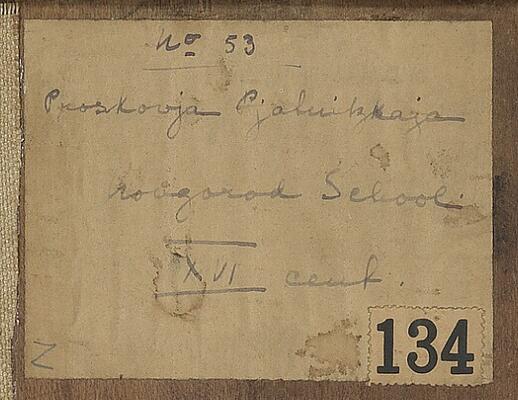 No 53
Proskovja Pjatnikkaja
novgorod School.
XVI cent.
Z
134